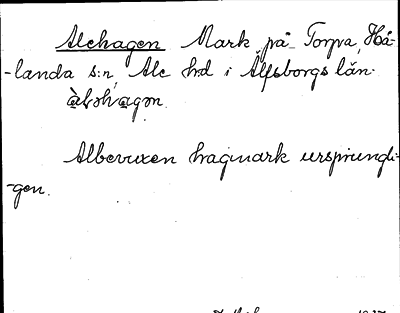 Alehagen Mark på Torpa, Hå-
-landa s:n, Ale hd i Älfsborgs län.
àləhagən.
Albevuxen hagmark ursprungli-
-gen.